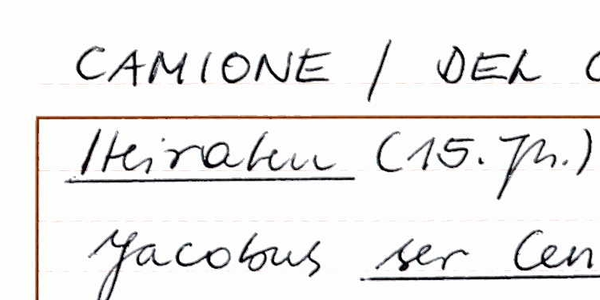 CAMIONE / DEL C
Heiraten (15. Jh.)
Jacobus ser Cen